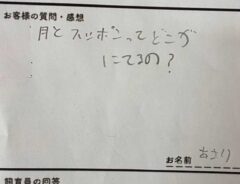 お客様の質問・感想
月とスッポンってどこが
にてるの？
お名前 あさり
飼育員の回答